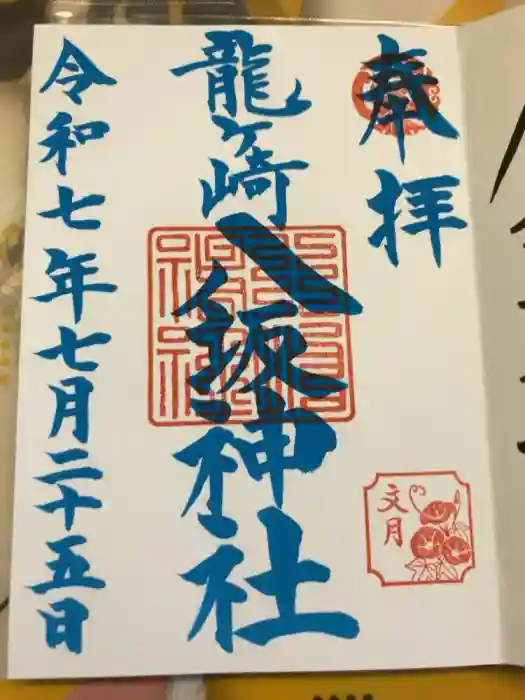 奉拝
龍ヶ崎八坂神社
令和七年七月二十五日
文月